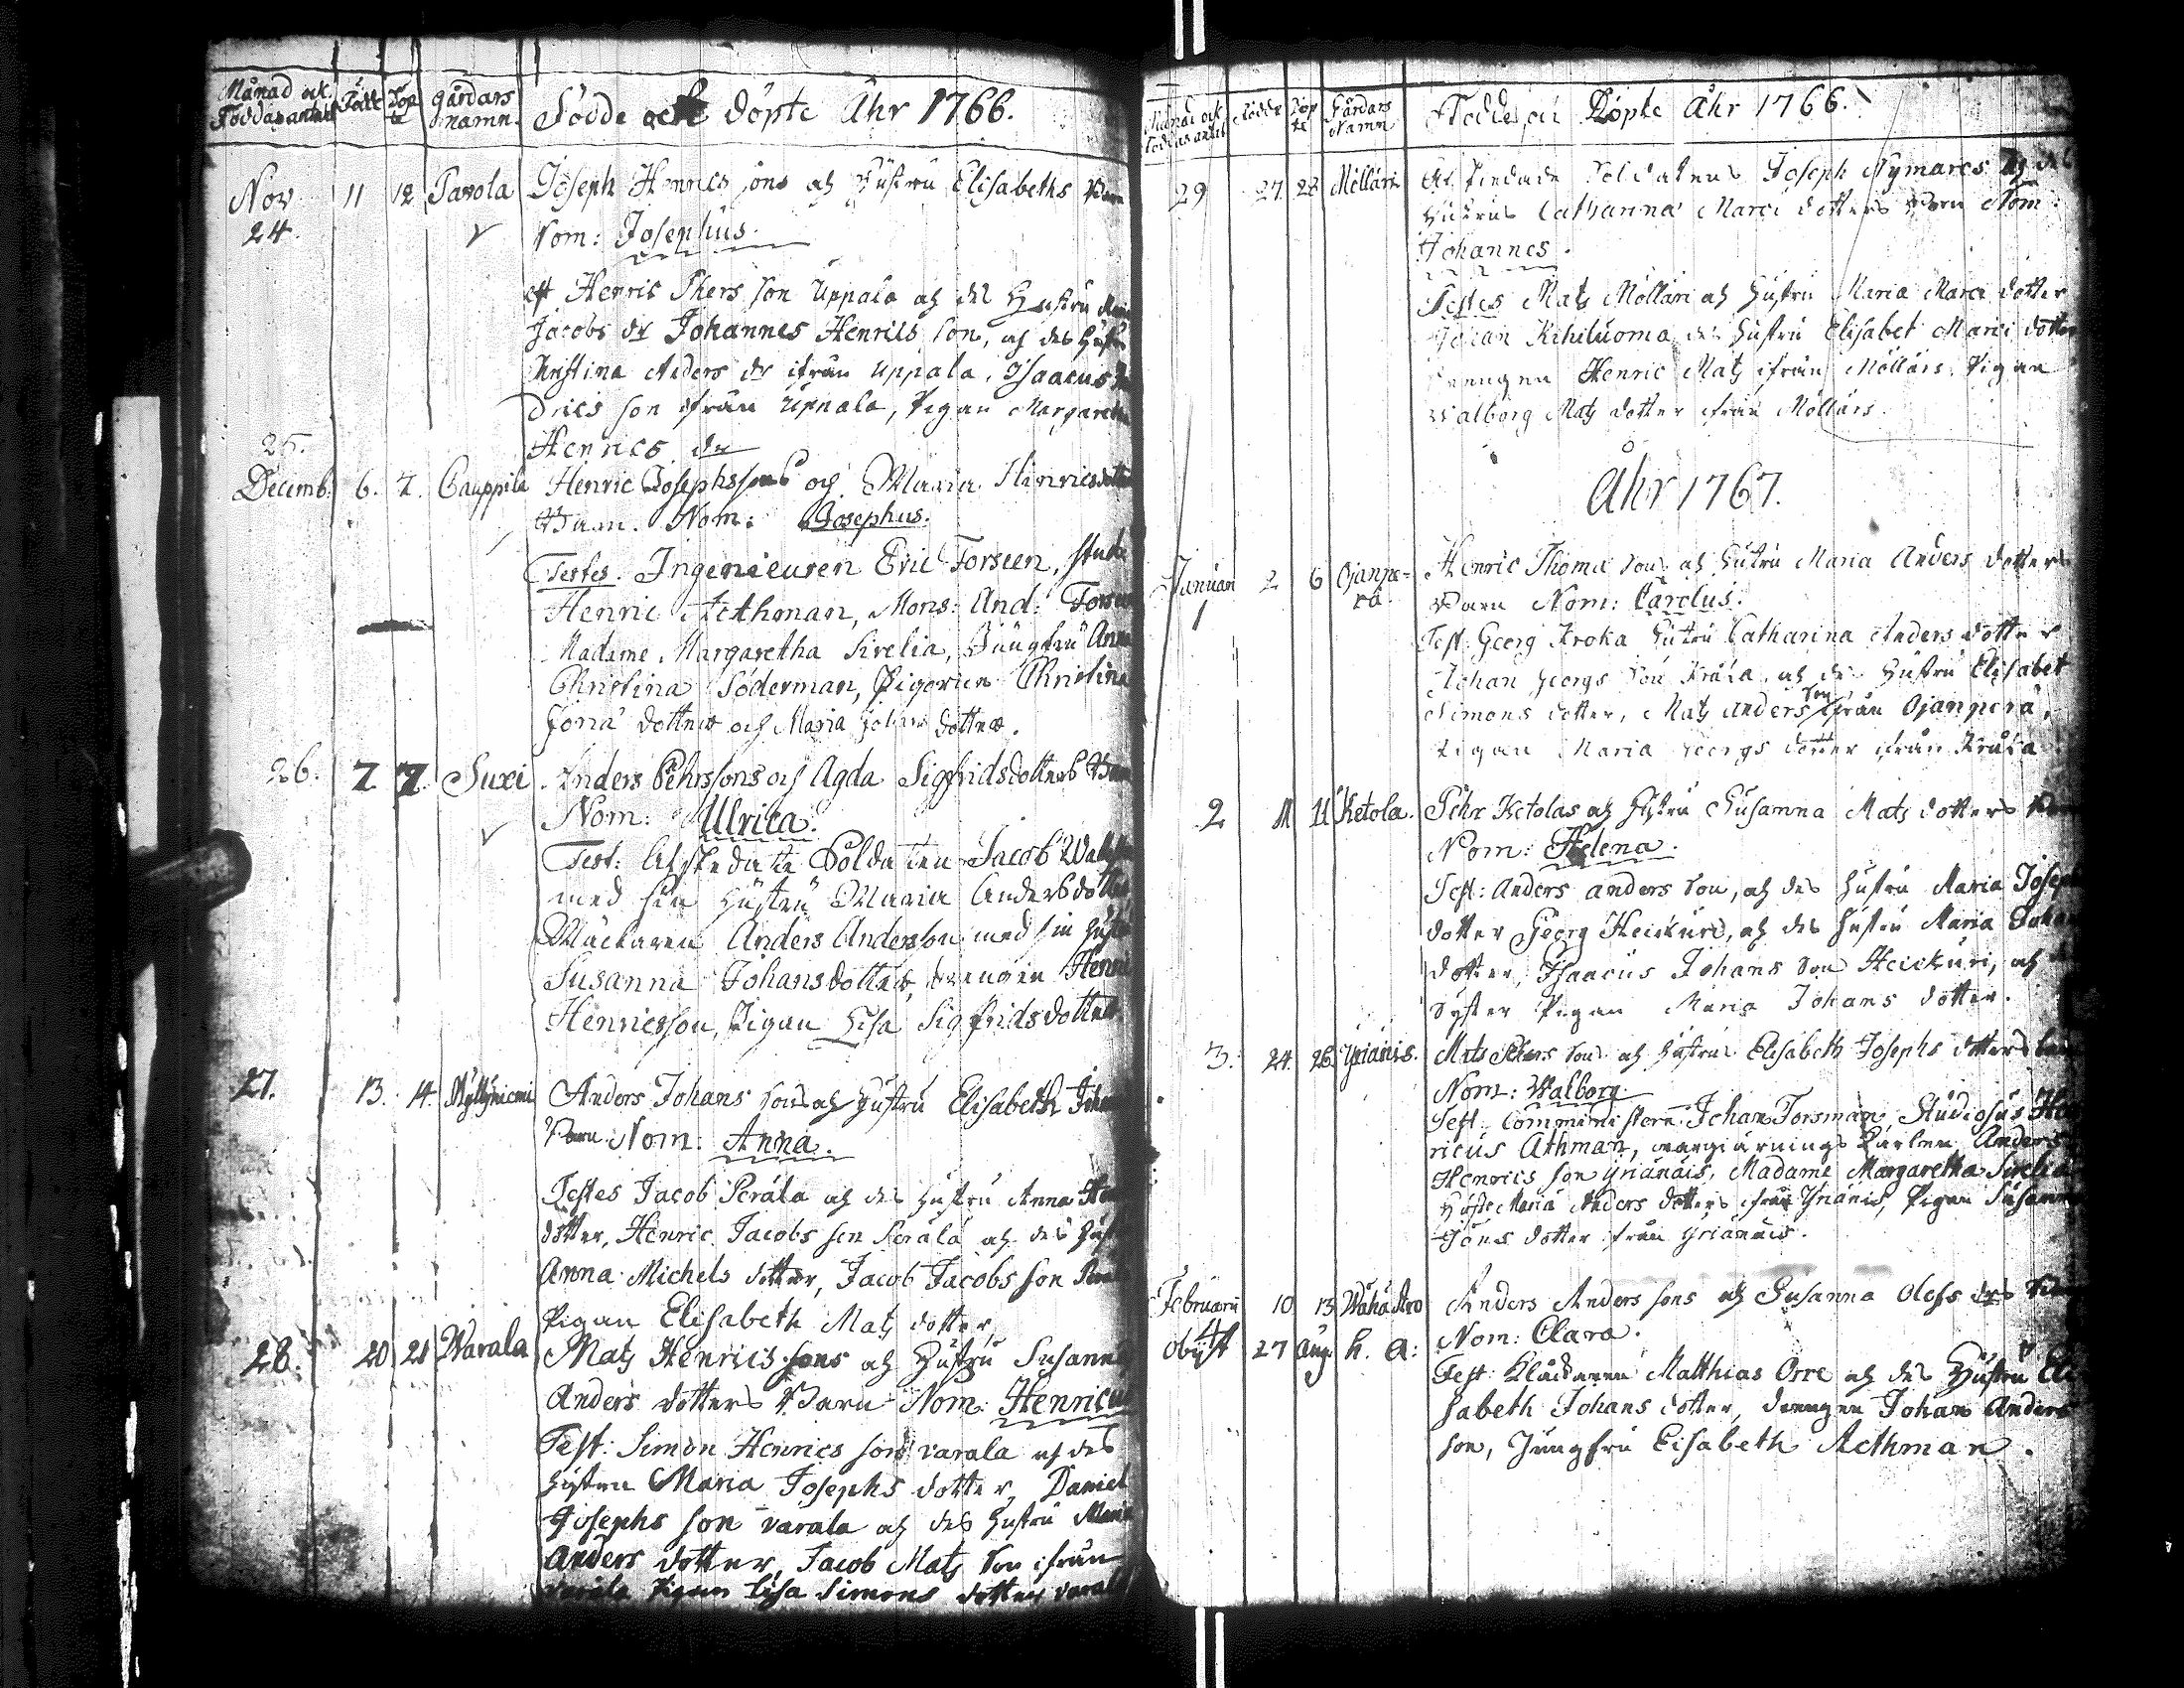 Månad och Födde Döp Gårdars Födde och Döpte Åhr 1766.
Födda antal te namn.
Nov 11 12 Parola Joseph Henrics sons och hustru Elisabeths Barn
24 Nom: Josephus.
Henric Phers son Uppala och des Hustru
Jacobs dr Johannes Henrics son, och des Hustru
Christina Anders dr ifrån Uppala, Isaacus
drics son ifrån Uppala, Pigan Margaretha
Henrics dr
25.
Decemb. 6. 7. Cauppila Henric Josephssons och Maria Henricsdotters
Barn. Nom: Josephus.
Testes. Ingenieuren Eric Forseen, Stud
Henric Aethman, Mons: And: Forseen
Madame Margaretha Sirelia, Jungfru Anna
Christina Söderman, Pigorne Christina
Jona dotter och Maria Johans dotter.
26. 7. 7. Suxi Anders Pehrssons och Agda Sigfridsdotters Barn
Nom: Ulrica.
Test: Afskedade Soldaten Jacob
med sin hustru Maria Andersdotter
Anders Andersson med sin hustru
Susanna Johansdotter, drengen Henric
Henricsson, Pigan Lisa Sigfridsdotter
27. 13. 14. Myllyniemi Anders Johans sons och hustru Elisabeth
Barn Nom: Anna.
Testes Jacob Perälä och des hustru Anna
dotter, Henric Jacobs son Perälä och des hustru
Anna Michels dotter, Jacob Jacobs son
Pigan Elisabeth Mats dotter
28. 20 21 Warala Mats Henrics sons och Hustru Susanna
Anders dotters Barn Nom: Henricus
Test: Simon Henrics son Varala och des
hustru Maria Josephs dotter, Daniel
Josephs son Varala och des hustru Maria
Anders dotter, Jacob Mats son ifrån
Varala Pigan Lisa Simons dotter Varala
Månad och Födde Döp Gårdars Födde och Döpte Åhr 1766.
Födda antal te Namn
29 27. 28 Mölläri Afskedade Soldatens Joseph Nymarcs och des
hustrus Catharina Marci dotters Barn Nom.
Johannes.
Testes Mats Mölläri och hustru Maria Marci dotter
Johan Kihiluoma des hustru Elisabet Marci dotter
Drengen Henric Mats ifrån Möllärs, Pigan
Walborg Mats dotter ifrån Möllärs.
Åhr 1767.
Januari 2 6 Ojanpe- Henric Thomæ sons och hustru Maria Anders dotters
1 rä. Barn Nom: Carolus.
Test: Georg Kroka hustru Catharina Anders dotter
Johan Georgs son och des hustru Elisabet
Simons dotter, Mats Anders son ifrån Ojanperä,
Pigan Maria Georgs dotter ifrån
2 11 11 Ketola. Pehr Ketolas och hustru Susanna Mats dotters Barn
Nom: Helena.
Test: Anders Anders son, och des hustru Maria Joseph
dotter Georg Heickuri, och des hustru Maria Johan
dotter, Isaacus Johans son Heickuri, och
Syster Pigan Maria Johans dotter.
3. 24. 26. Yrjänis. Mats Pehrs sons och hustrus Elisabeth Josephs dotters barn
Nom: Walborg.
Test. Comministern Johan Forsman, Studiosus Hen
ricus Athman, Anders
Henrics son Yrjänäis, Madame Margaretha Sirelia
Maria Anders dotter ifrån Yrjänis, Pigan Susanna
Jöns dotter från Yrjänäis.
Februarii 10 13 Wähä Aro Anders Anders sons och Susanna Olofs drs Barn
4 Nom: Clara.
obijt 27 Aug. h. a: Test: Klåckaren Matthias Orre och des Hustru Eli
sabeth Johans dotter, drengen Johan Anders
son, Jungfru Elisabeth Aethman.